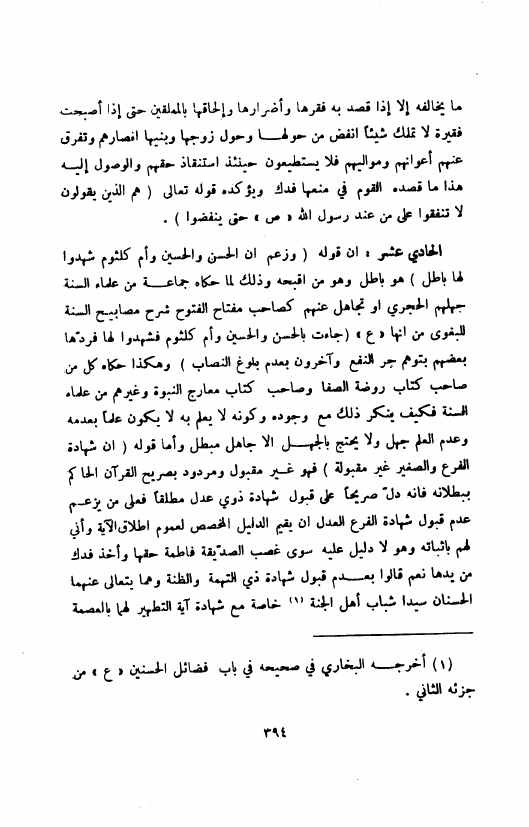 ما يخالفه إلا إذا قصد به فقرها وأضرارها وإلحاقها بالمملقين حتى إذا أصبحت
فقيرة لا تملك شيئاً انفض من حولها وحول زوجها وبنيها انصارهم وتفرق
عنهم أعوانهم ومواليهم فلا يستطيعون حينئذ استنقاذ حقهم والوصول إليه
هذا ما قصده القوم في منعها فدك ويؤكده قوله تعالى ( هم الذين يقولون
لا تنفقوا على من عند رسول الله « ص » حتى ينفضوا ) .
الحادي عشر : ان قوله ( وزعم ان الحسن والحسين وأم كلثوم شهدوا
لها باطل ) هو باطل وهو من اقبحه وذلك لما حكاه جماعة من علماء السنة
جهلهم الحجري او تجاهل عنهم كصاحب مفتاح الفتوح شرح مصابيح السنة
للبغوى من انها « ع » (جاءت بالحسن والحسين وأم كلثوم فشهدوا لها فردّها
بعضهم بتوهم جر النفع وآخرون بعدم بلوغ النصاب ) وهكذا حكاه كل من
صاحب كتاب روضة الصفا وصاحب كتاب معارج النبوة وغيرهم من علماء
السنة فكيف ينكر ذلك مع وجوده وكونه لا يعلم به لا يكون علماً بعدمه
وعدم العلم جهل ولا يحتج بالجهل الا جاهل مبطل وأما قوله ( ان شهادة
الفرع والصغير غير مقبولة ) فهو غير مقبول ومردود بصريح القرآن الحاكم
ببطلانه فانه دلّ صريحاً على قبول شهادة ذوي عدل مطلقاً فعلى من يزعم
عدم قبول شهادة الفرع العدل ان يقيم الدليل المخصص لعموم اطلاق الآية وأنى
لهم باثباته وهو لا دليل عليه سوى غصب الصديقة فاطمة حقها وأخذ فدك
من يدها نعم قالوا بعدم قبول شهادة ذي التهمة والظنة وهما يتعالى عنهما
الحسنان سيدا شباب أهل الجنة (١) خاصة مع شهادة آية التطهير لهما بالعصمة
(١) أخرجه البخاري في صحيحه في باب فضائل الحسنين « ع » من
جزئه الثاني .
٣٩٤